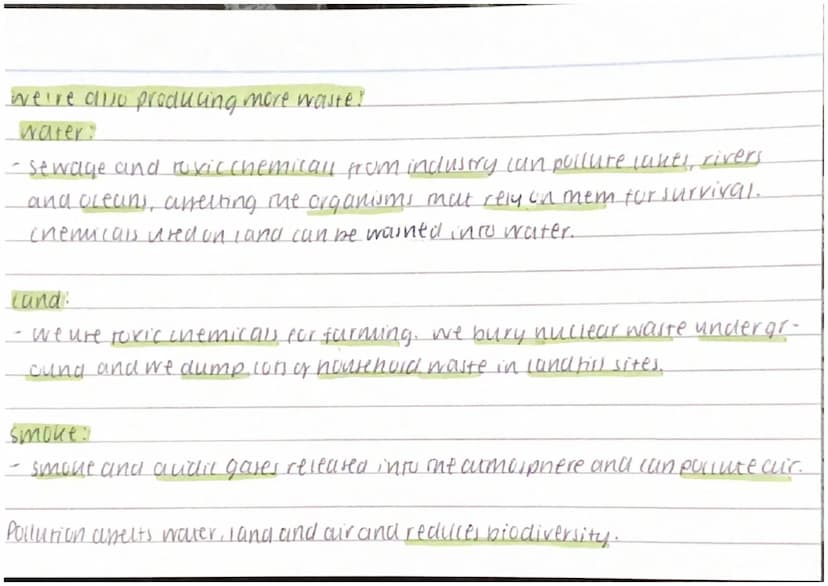 we're also producing more waste!
water:
- sewage and toxic chemicals from industry can pollute lakes, rivers
and oceans, affecting the organisms that rely on them for survival.
chemicals used on land can be washed into water.
Land:
- we use toxic chemicals for farming. we bury nuclear waste undergr-
ound and we dump lots of household waste in landfill sites.
smoke:
- smoke and acidic gases released into the atmosphere and can pollute air.
Pollution affects water, land and air and reduces biodiversity.